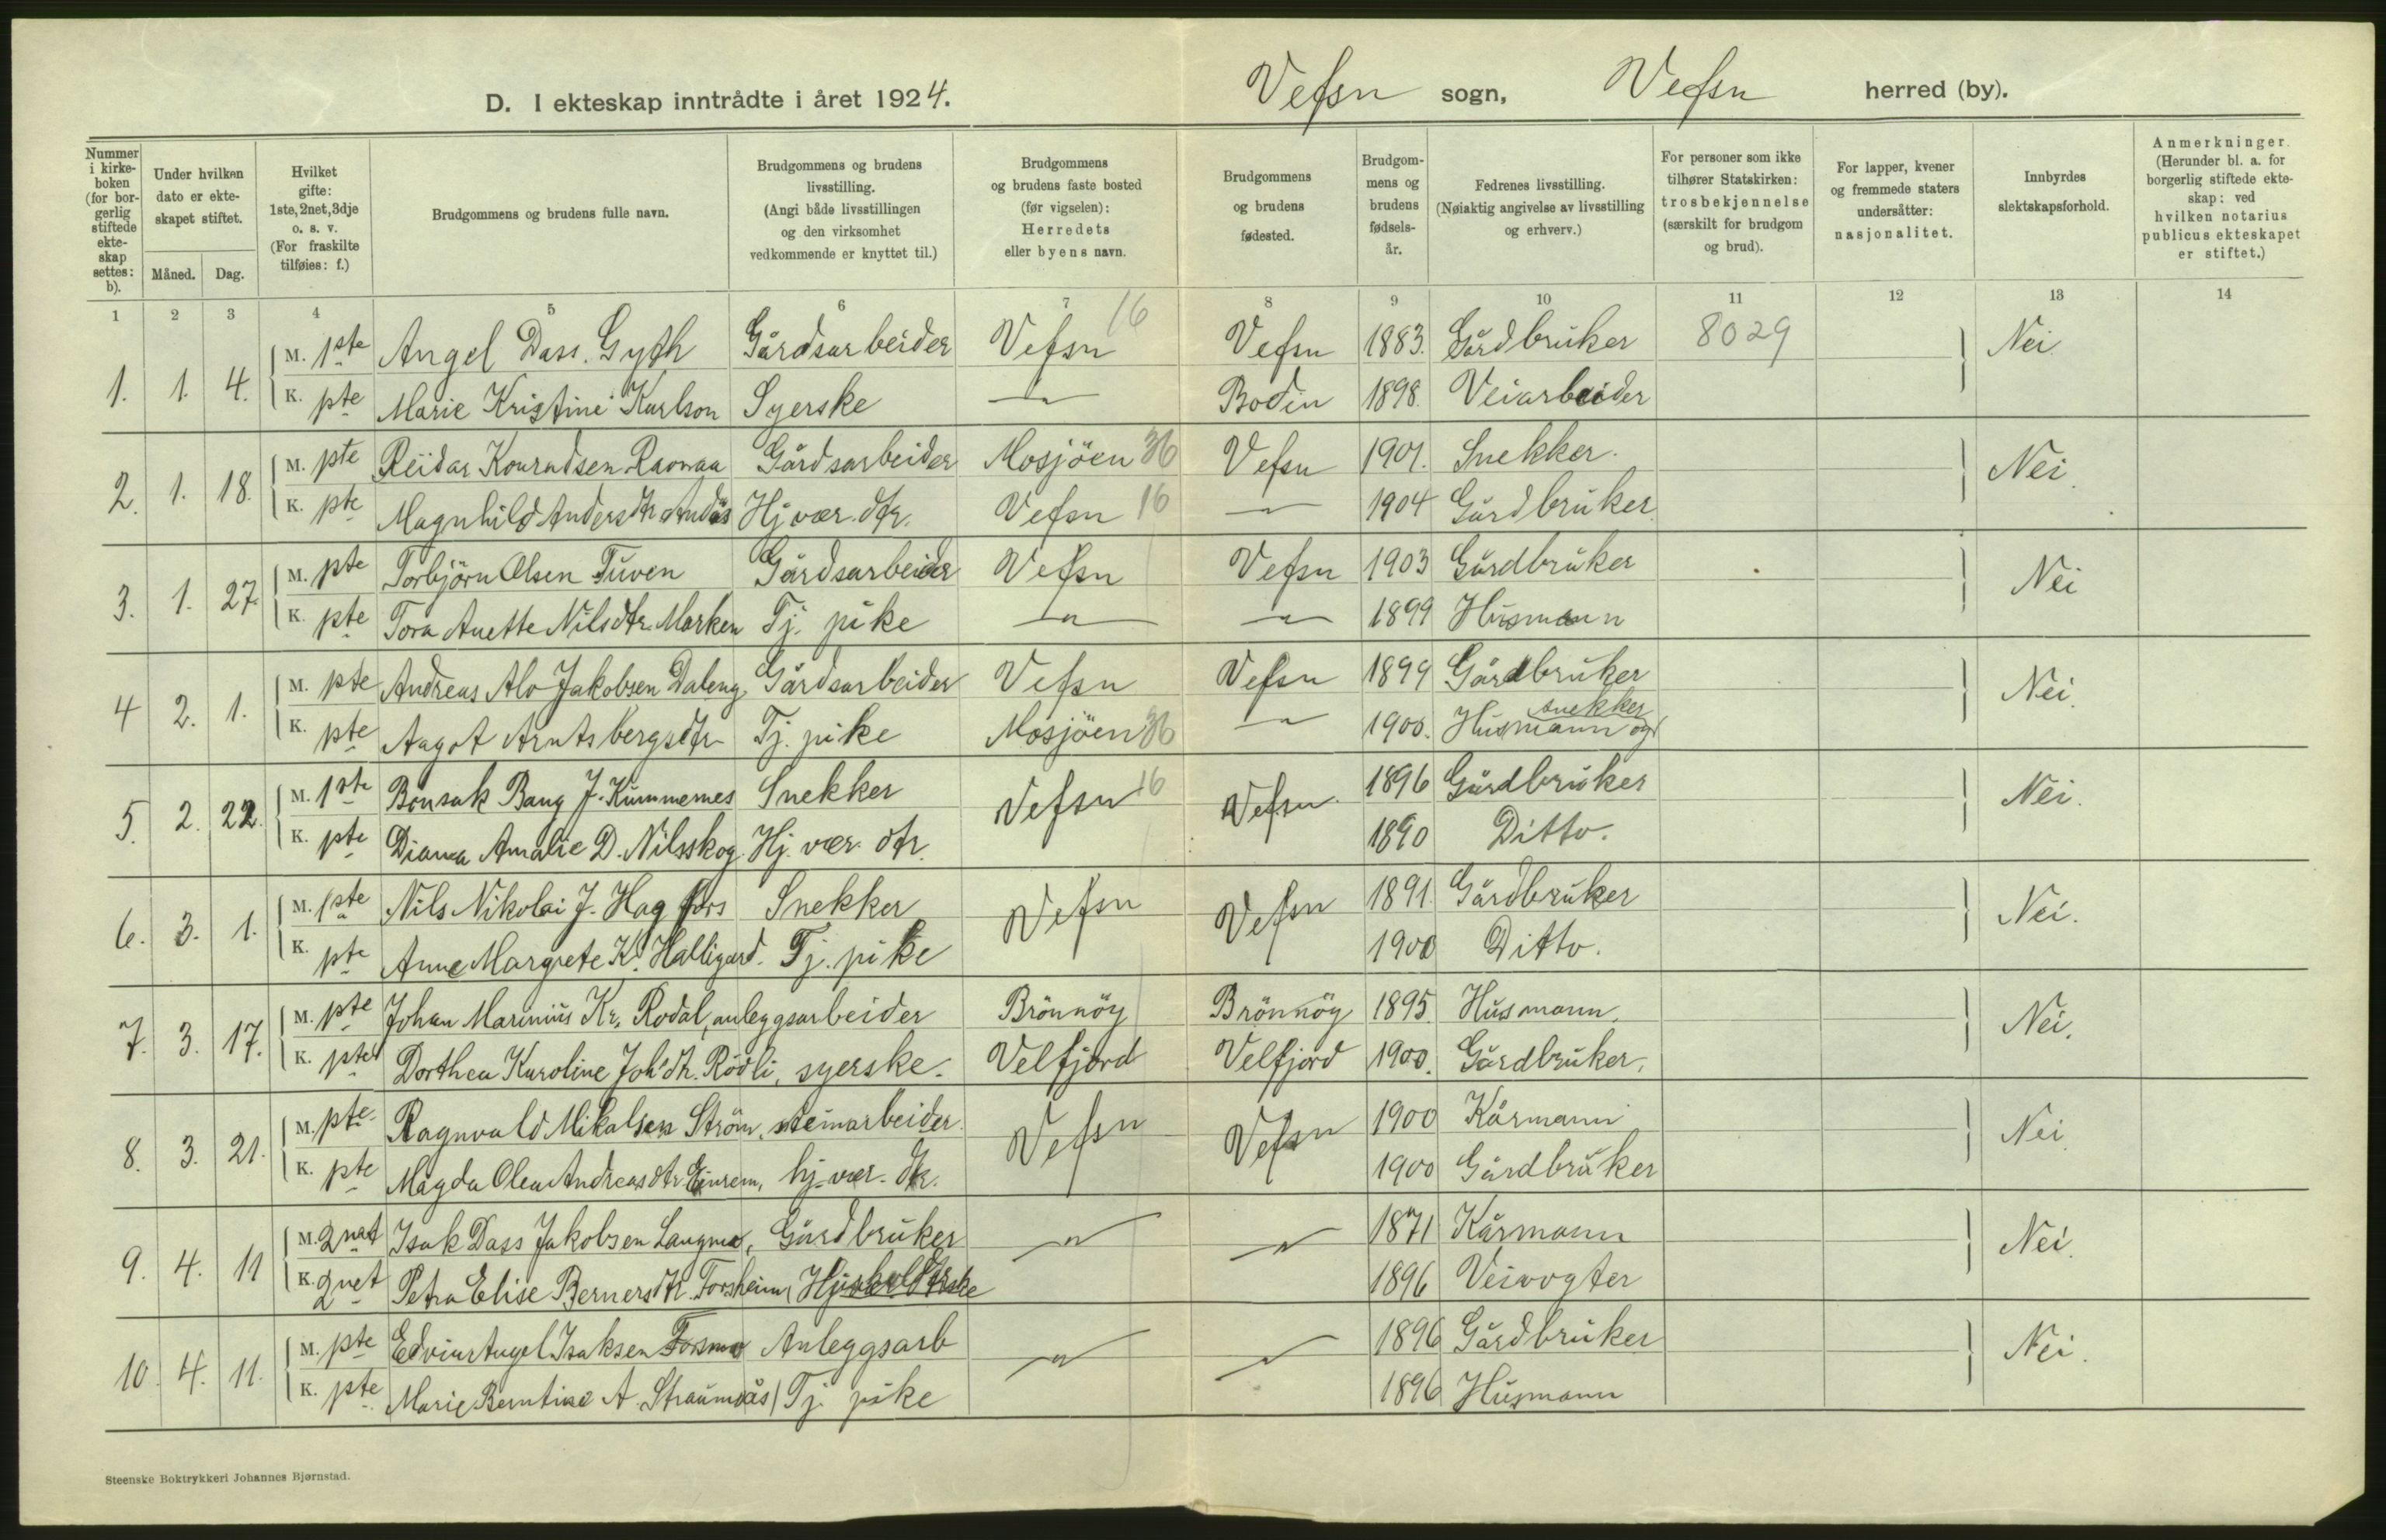 D. I ekteskap inntrådte i året 1924.
Vefsn sogn, Vefsn herred (by).
Nummer i kirkeboken (for borgerlig stiftede ekteskap settes: b).
Under hvilken dato er ekteskapet stiftet.
Måned. Dag.
Hvilket gifte: 1ste, 2net, 3dje o. s. v. (For fraskilte tilføies: f.)
Brudgommens og brudens fulle navn.
Brudgommens og brudens livsstilling. (Angi både livsstillingen og den virksomhet vedkommende er knyttet til.)
Brudgommens og brudens faste bosted (før vigselen): Herredets eller byens navn.
Brudgommens og brudens fødested.
Brudgommens og brudens fødselsår.
Fedrenes livsstilling. (Nøiaktig angivelse av livsstilling og erhverv.)
For personer som ikke tilhører Statskirken: trosbekjennelse (særskilt for brudgom og brud).
For lapper, kvener og fremmede staters undersåtter: nasjonalitet.
Innbyrdes slektskapsforhold.
Anmerkninger. (Herunder bl. a. for borgerlig stiftede ekteskap: ved hvilken notarius publicus ekteskapet er stiftet.)
1 2 3 4 5 6 7 8 9 10 11 12 13 14
1. 1. 4. M. 1ste Angel Dass. Gyth Gårdsarbeider Vefsn 16 Vefsn 1883. Gårdbruker 8029 Nei.
K. pte Marie Kristine Karlson Syerske -"- Bodin 1898. Veiarbeider
2. 1. 18. M. pte Reidar Konradsen Ravnaa Gårdsarbeider Mosjöen 36 Vefsn 1901. Snekker. Nei.
K. pte Magnhild Andersdtr Andås Hj. vær. dtr. Vefsn 16 -"- 1904 Gårdbruker.
3. 1. 27. M. pte Torbjörn Olsen Tuven Gårdsarbeider Vefsn Vefsn 1903 Gårdbruker Nei
K. pte Tora Anette Nilsdtr. Marken Tj. pike -"- -"- 1899 Husmann
4 2. 1. M. pte Andreas Alo Jakobsen Daleng Gårdsarbeider Vefsn Vefsn 1899 Gårdbruker Nei.
K. pte Aagot Arntsbergsdtr Tj. pike Mosjöen 36 -"- 1900. Husmann og snekker
5. 2. 22. M. 1ste Bonsak Bang J. Kummernes Snekker Vefsn 16 Vefsn. 1896 Gårdbruker Nei.
K. pte Diana Amalie D. Nilsskog Hj. vær. dtr. 1890 Ditto.
6. 3. 1. M. 1ste Nils Nikolai J. Hagfors Snekker Vefsn Vefsn 1891. Gårdbruker Nei.
K. pte Anne Margrete K. Halligard. Tj. pike 1900 Ditto.
7. 3. 17. M. pte Johan Marinius Kr. Rodal, anleggsarbeider Brönnöy Brönnöy 1895. Husmann. Nei.
K. pte Dorthea Karoline Joh'dtr. Rödli, syerske. Velfjord Velfjord 1900. Gårdbruker.
8. 3. 21. M. pte Ragnvald Mikalsen Ström, steinarbeider Vefsn Vefsn 1900 Kårmann Nei.
K. pte Magda Olea Andreasdtr Einrem, hj. vær. dtr. 1900 Gårdbruker
9. 4. 11 M. 2net Isak Dass Jakobsen Langmo, Gårdbruker -"- -"- 1871 Kårmann Nei.
K. 2net Petra Elise Bernersdtr. Forsheim, 1896 Veivogter
10. 4. 11. M. pte Edvin Angel Isaksen Fosmo Anleggsarb -"- -"- 1896 Gårdbruker Nei.
K. pte Marie Berntine A. Straumdås Tj. pike 1896 Husmann
Steenske Boktrykkeri Johannes Bjørnstad.